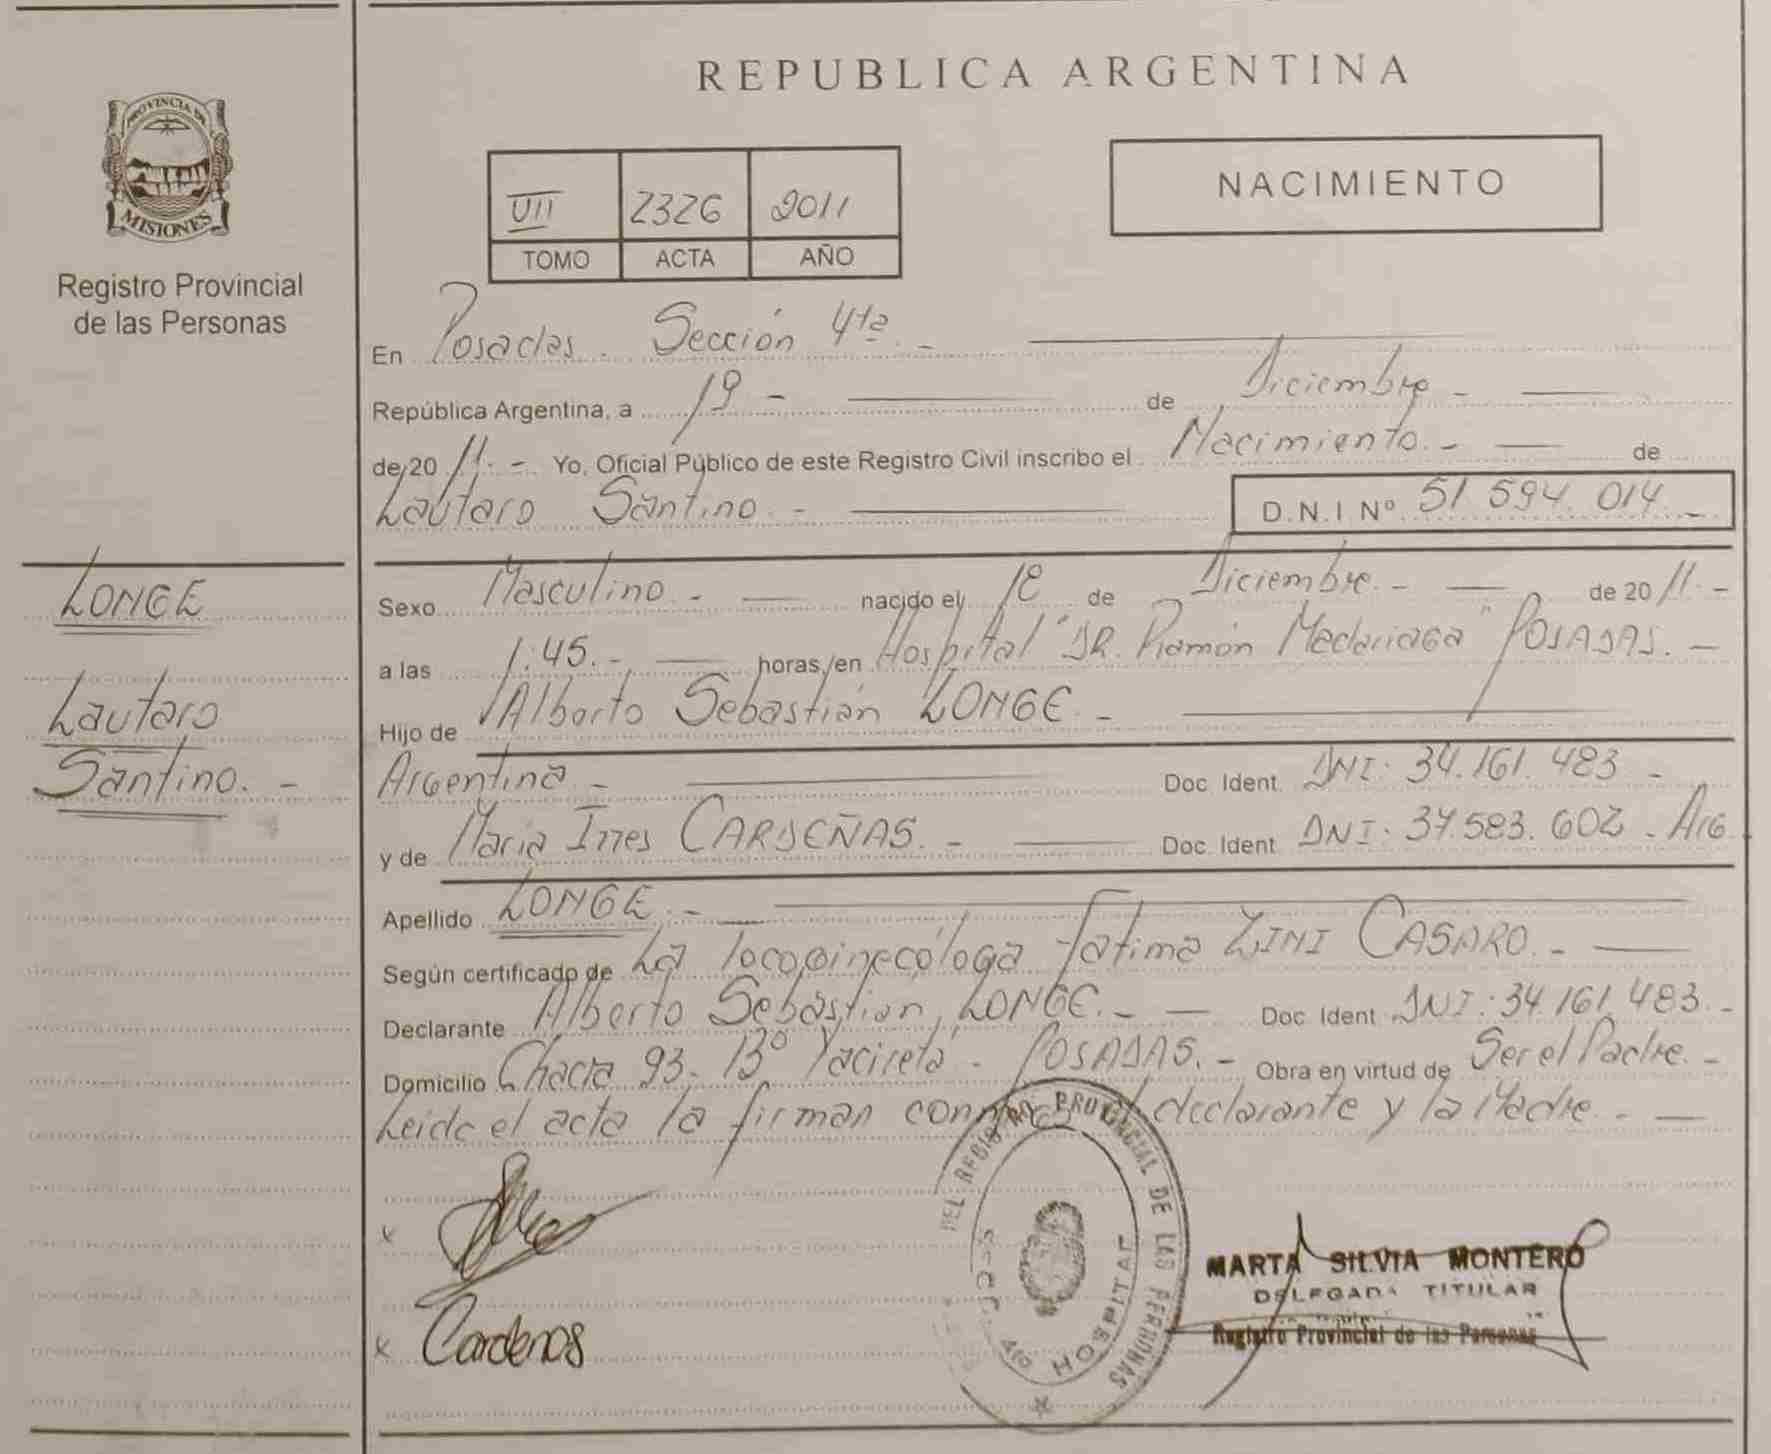 PROVINCIA DE
MISIONES
Registro Provincial
de las Personas
LONGE
Lautaro
Santino. -
REPUBLICA ARGENTINA
NACIMIENTO
VII 2326 2011
TOMO ACTA AÑO
En Posadas. Sección 4ta. -
República Argentina, a 19 - de Diciembre -
de 20 11. - Yo, Oficial Público de este Registro Civil inscribo el Nacimiento. - de
Lautaro Santino. - D.N.I Nº 51.594.014. -
Sexo Masculino. - nacido el de Diciembre. - de 20 11. -
a las 1:45. - horas, en Hospital "DR. Ramón Madariaga" POSADAS. -
Hijo de Alberto Sebastián LONGE. -
Argentina - Doc. Ident. DNI. 34.161.483 -
y de Maria Ines CARDEÑAS. - Doc. Ident. DNI. 37.583.602 - Arg.
Apellido LONGE. -
Según certificado de La Tocoginecóloga Fatima ZINI CASARO. -
Declarante Alberto Sebastian LONGE. - Doc. Ident. DNI: 34.161.483. -
Domicilio Chacra 93. Bº Yacireta - POSADAS. - Obra en virtud de Ser el Padre. -
Leida el acta la firman declarante y la Madre. -
DEL REGISTRO PROVINCIAL DE LAS PERSONAS
HOSPITAL
x
x Cardenas
MARTA SILVIA MONTERO
DELEGADA TITULAR
Registro Provincial de las Personas